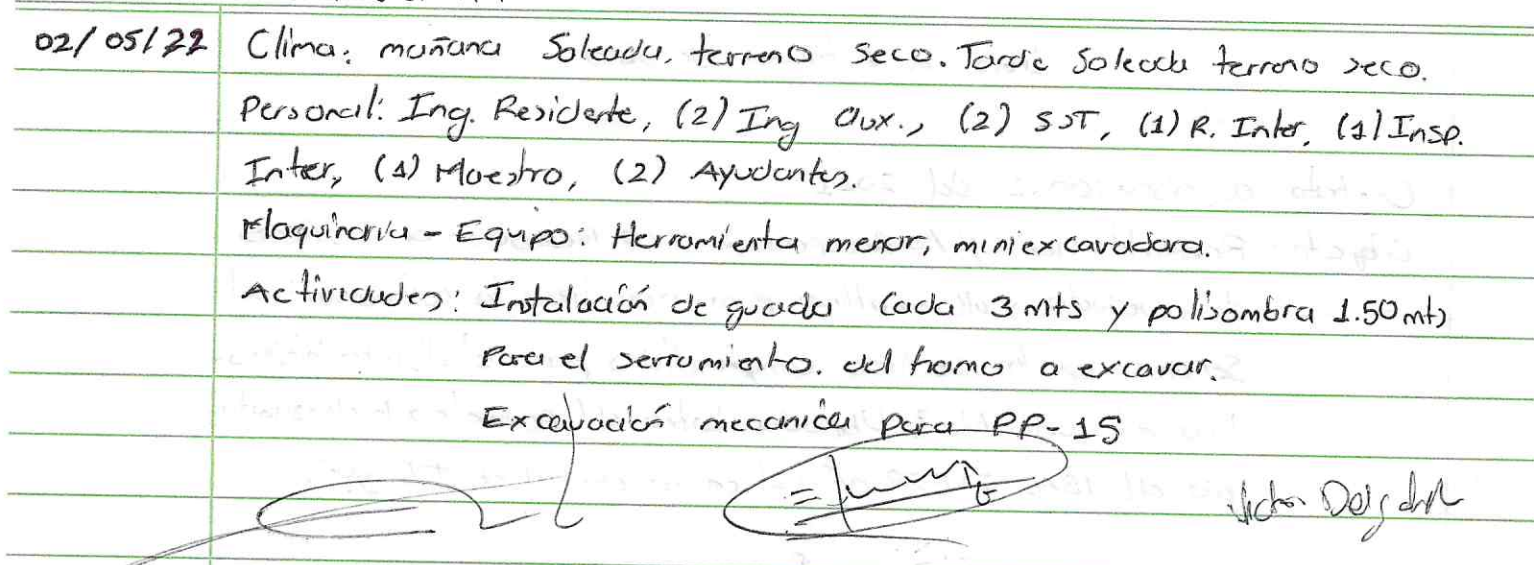 02/05/22 Clima: mañana Soleada, terreno seco. Tarde Soleada terreno seco.
Personal: Ing. Residente, (2) Ing Aux., (2) SST, (1) R. Inter, (1) Insp.
Inter, (1) Maestro, (2) Ayudantes.
Maquinaria - Equipo: Herramienta menor, miniexcavadora.
Actividades: Instalación de guadua Cada 3 mts y polisombra 1.50 mts
Para el serramiento. del tramo a excavar.
Excavación mecanica para PP-15
Victor Delgado